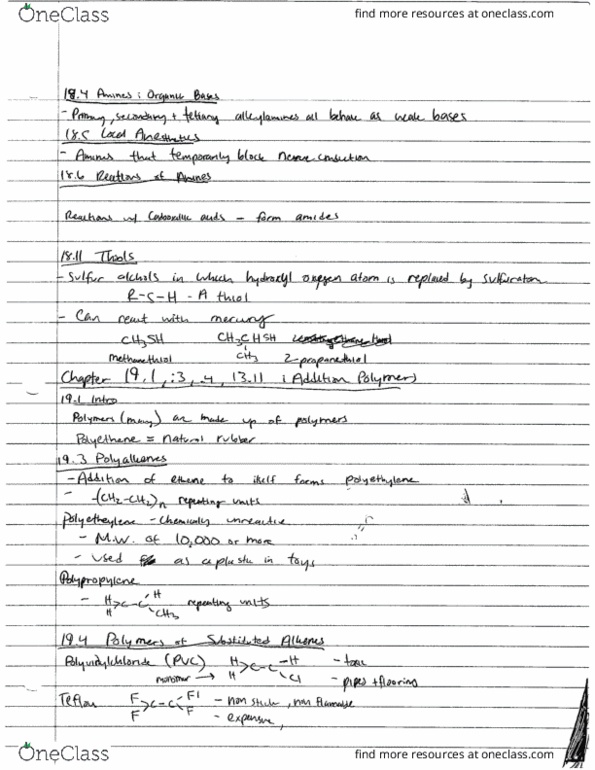 OneClass find more resources at oneclass.com
18.4 Amines : Organic Bases
- Primary, secondary + tetiary alkylamines all behave as weak bases
18.5 Local Anesthetics
- Amines that temporarily block nerve conduction
18.6 Reactions of Amines
Reactions w/ Carboxylic acids - form amides
18.11 Thiols
- Sulfur alchols in which hydroxyl oxygen atom is replaced by sulfur atom
R-S-H - A thiol
- Can react with mercury
CH3SH CH3CHSH
methanethiol CH3 2-propanethiol
Chapter 19.1, .3, .4, 13.11 : Addition Polymers
19.1 Intro
Polymers (many) are made up of polymers
Polyethane = natural rubber
19.3 Polyalkenes
- Addition of ethene to itself forms polyethylene
- -(CH2-CH2)n repeating units
Polyetheylene - Chemically unreactive
- M.W. of 10,000 or more
- used as a plastic in toys
Polypropylene
- H H C-C H CH3 repeating units
19.4 Polymers of Substituted Alkenes
(PVC) H H C-C H Cl - toxic
monomer → - pipes + flooring
Teflon F F C-C F F - non stick, non flamable
- expensive
OneClass find more resources at oneclass.com